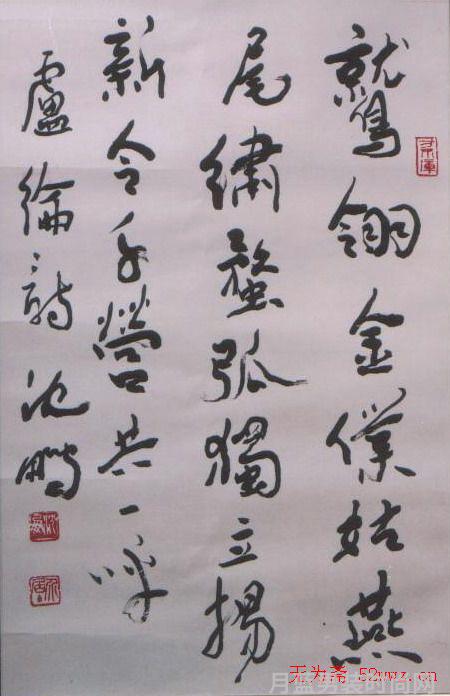 鷲翎金僕姑燕
尾繡蝥弧獨立揚
新令千營共一呼
盧綸詩 沈鵬
无为斋 52wwz.cn